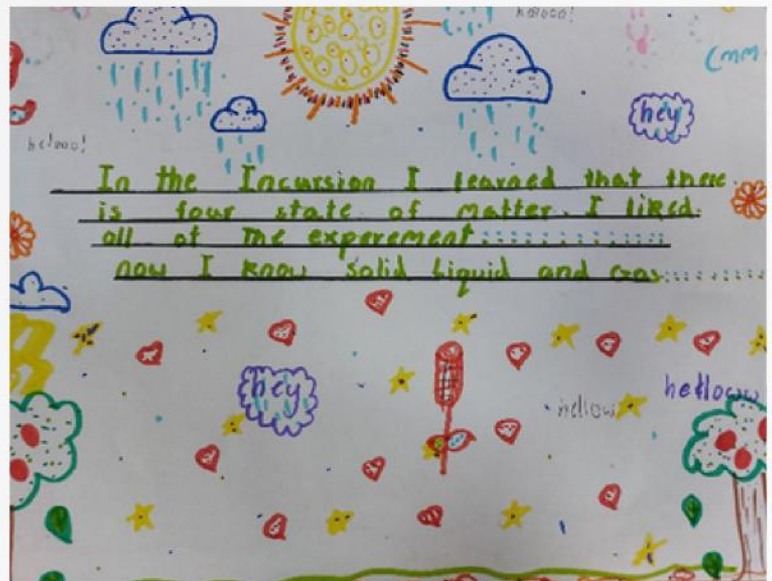 helooo!
hey
helooo!
In the Incursion I learned that there
is four state of matter. I liked
all of the experement
now I know solid liquid and Gas
hey
hellow
helloww